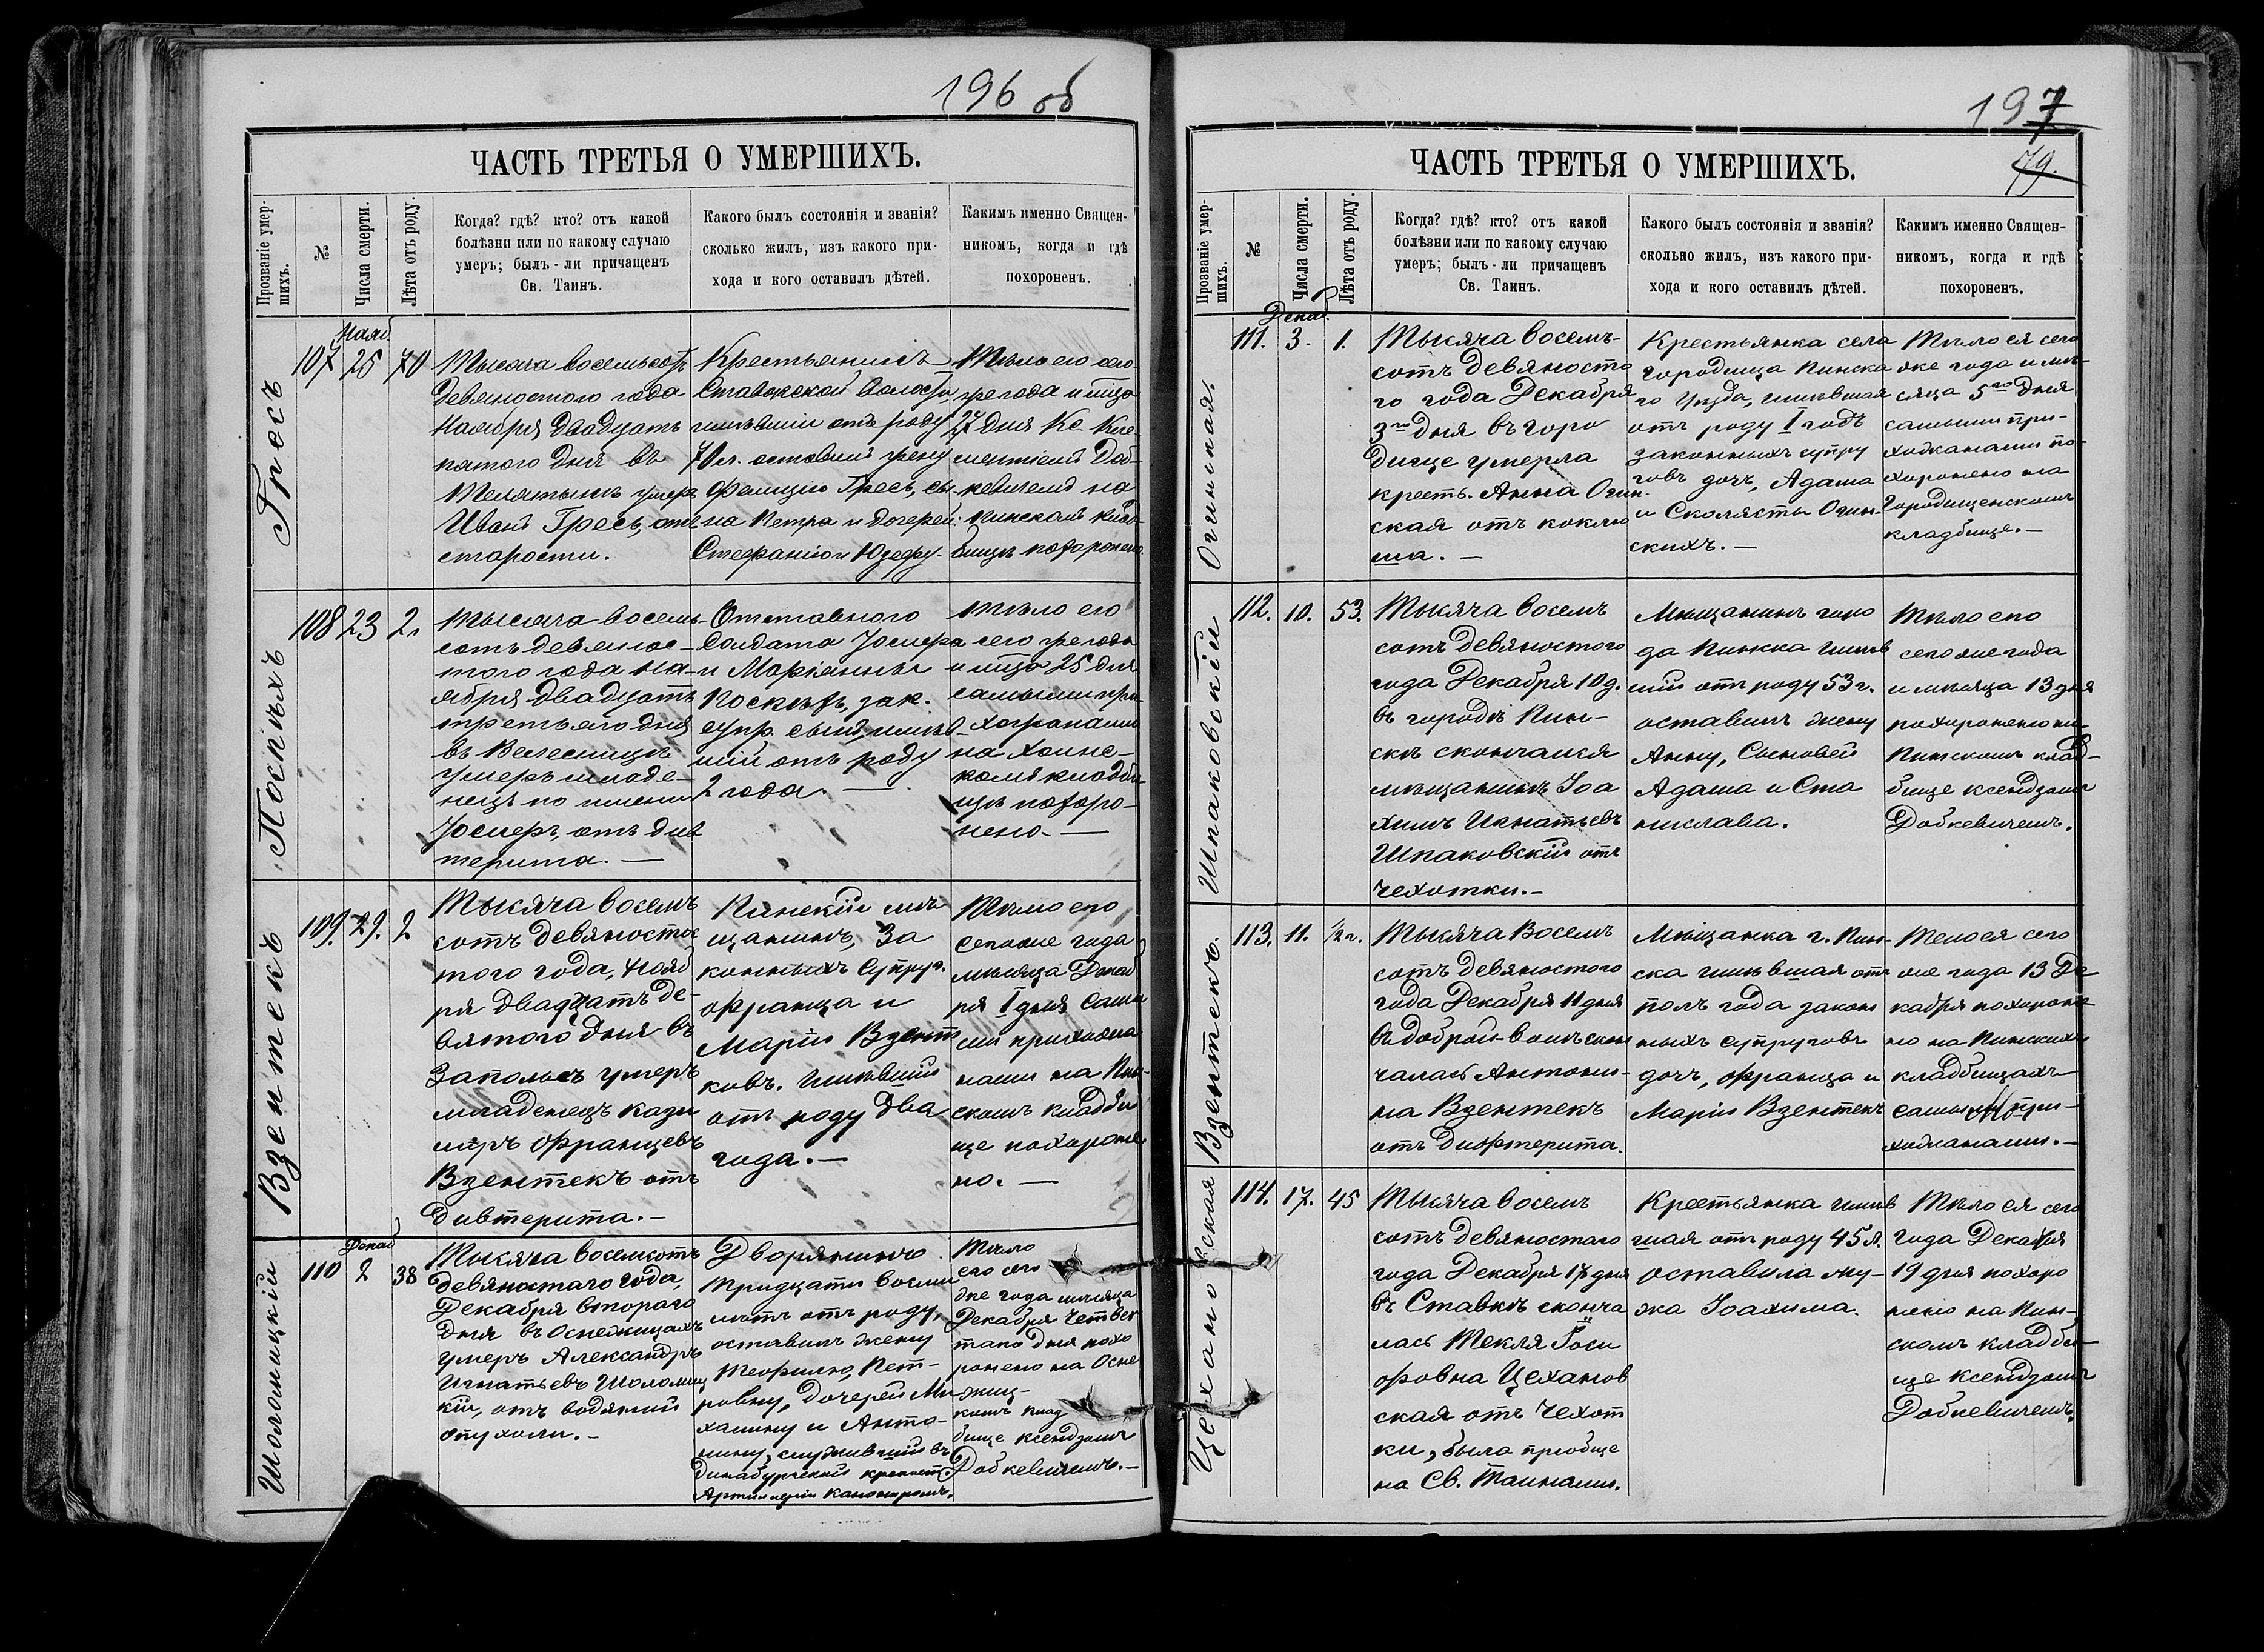 196 об
ЧАСТЬ ТРЕТЬЯ О УМЕРШИХЪ.
Прозваніе умер-
шихъ.
№
Числа смерти.
Лѣта отъ роду.
Когда? гдѣ? кто? отъ какой
болѣзни или по какому случаю
умеръ; былъ-ли причащенъ
Св. Таинъ.
Какого былъ состоянія и званія?
сколько жилъ, изъ какого при-
хода и кого оставилъ дѣтей.
Какимъ именно Священ-
никомъ, когда и гдѣ
похороненъ.
Гресъ
107
Нояб.
25
70
Тысяча восемьсотъ
девяностого года
Ноября двадцать
пятого дня въ
умеръ
Иванъ Гресь, отъ
старости.
Крестьянинъ
Ставокской волости,
имѣвшій отъ роду
70 л. оставил жену
Фелицію Гресь, сы
на Петра и дочерей:
Стефанію и Юзефу.
Тѣло его сего
же года и м-ца
27 дня Кс. Кле-
ментіемъ Доб-
кевичемъ на
Пинскомъ клад-
бищѣ похоронено
Поскихъ
108
23
2.
Тысяча восемь-
сотъ девянос-
того года но-
ября двадцать
третьяго дня
въ Велесницѣ
умеръ младе-
нецъ по имени
Іосифъ, отъ диф
терита. —
Отставного
Солдата Іосифа
и Маріанны
зак.
супр. сынъ, имѣв-
шій отъ роду
2 года. —
Тѣло его
сего же года
и м-ца 25 дня
самыми при
хожанами
на Хоинс-
комъ кладби
щѣ похоро-
нено. —
Взентекъ
109.
29.
2
Тысяча восемъ
сотъ девяносто
того года, Нояб
ря двадцать де-
вятого дня въ
Запольѣ умеръ
младенецъ Кази
міръ Францевъ
Взентекъ отъ
дивтерита. —
Пинскій мѣ
щанинъ, За
конныхъ супруг.
Франца и
Маріи Взент
ковъ. имѣвшій
отъ роду два
года. —
Тѣло его
сего же года
мѣсяца Декаб
ря I дня Самы
ми прихожа
нами на Пин-
скомъ кладби
ще похороне
но. —
Шоломицкій
110
Декаб
2
38
Тысяча восемсотъ
девяностаго года,
Декабря второго
дня въ Оснежицахъ
умеръ Александръ
Игнатьевъ Шоломиц
кій, отъ водяной
опухоли. —
Дворянинъ
тридцати восьми
лѣтъ отъ роду,
оставилъ жену
Теофилю, Пет-
ровну, дочерей Ми
халину и Анто-
нину, служившій въ
Динабургской крѣпост.
Артиллеріи Канониромъ.
Тѣло
его сего
же года мѣсяца
Декабря Четвер
таго дня похо
ронено на Осне
жиц-
комъ клад
бище ксендзомъ
Добкевичемъ. —
197
79.
ЧАСТЬ ТРЕТЬЯ О УМЕРШИХЪ.
Прозваніе умер-
шихъ.
№
Числа смерти.
Лѣта отъ роду.
Когда? гдѣ? кто? отъ какой
болѣзни или по какому случаю
умеръ; былъ-ли причащенъ
Св. Таинъ.
Какого былъ состоянія и званія?
сколько жилъ, изъ какого при-
хода и кого оставилъ дѣтей.
Какимъ именно Священ-
никомъ, когда и гдѣ
похороненъ.
Огинская.
111.
Декаб.
3.
1.
Тысяча восемъ-
сотъ девяносто
го года Декабря
3го дня въ Горо
дище умерла
кресть. Анна Огин-
ская отъ коклю
ша. —
Крестьянка села
Городища Пинска
го Уѣзда, имѣвшая
отъ роду I годъ
законныхъ супру
говъ дочь, Адама
и Сколясты Огин-
скихъ. —
Тѣло ея сего
же года и мѣ-
сяца 5го дня
самыми при-
хожанами по-
хоронено на
Городищенскомъ
кладбище. —
Шпаковскій
112.
10.
53.
Тысяча восемъ
сотъ девяностого
года Декабря 10 д.
въ городѣ Пин-
скѣ скончался
мѣщанинъ Іоа
химъ Игнатьевъ
Шпаковскій отъ
чехотки. —
Мѣщанинъ горо
да Пинска имѣв
шій отъ роду 53 г.
оставилъ жену
Анну, Сыновей
Адама и Ста
нислава.
Тѣло его
сего же года
и мѣсяца 13 дня
похоронено на
Пинскомъ клад-
бище ксендзомъ
Добкевичемъ.
Взентекъ.
113.
11.
½ г.
Тысяча Восемъ
сотъ девяностого
года Декабря 11 дня
въ доброй-волѣ скон
чалась Антони-
на Взентекъ
отъ дифтерита.
Мѣщанка г. Пин-
ска имѣвшая отъ
полъ года закон
ныхъ супруговъ
дочь, Франца и
Маріи Взентекъ
Тело ея сего
же года 13 Де
кабря похороне
но на Пинскихъ
кладбищахъ
самыми при-
хожанами. —
Цехановская
114.
17.
45
Тысяча восемъ
сотъ девяностаго
года Декабря 17 дня
въ Ставкѣ сконча
лась Текля Іоси
фовна Цеханов
ская отъ Чехот
ки, была приобще
на Св. Таинами.
Крестьянка имѣв
шая отъ роду 45 л.
оставила му-
жа Іоахима.
Тѣло ея сего
года Декабря
19 дня похоро
нено на Пин-
скомъ кладби-
ще ксендзомъ
Добкевичемъ.